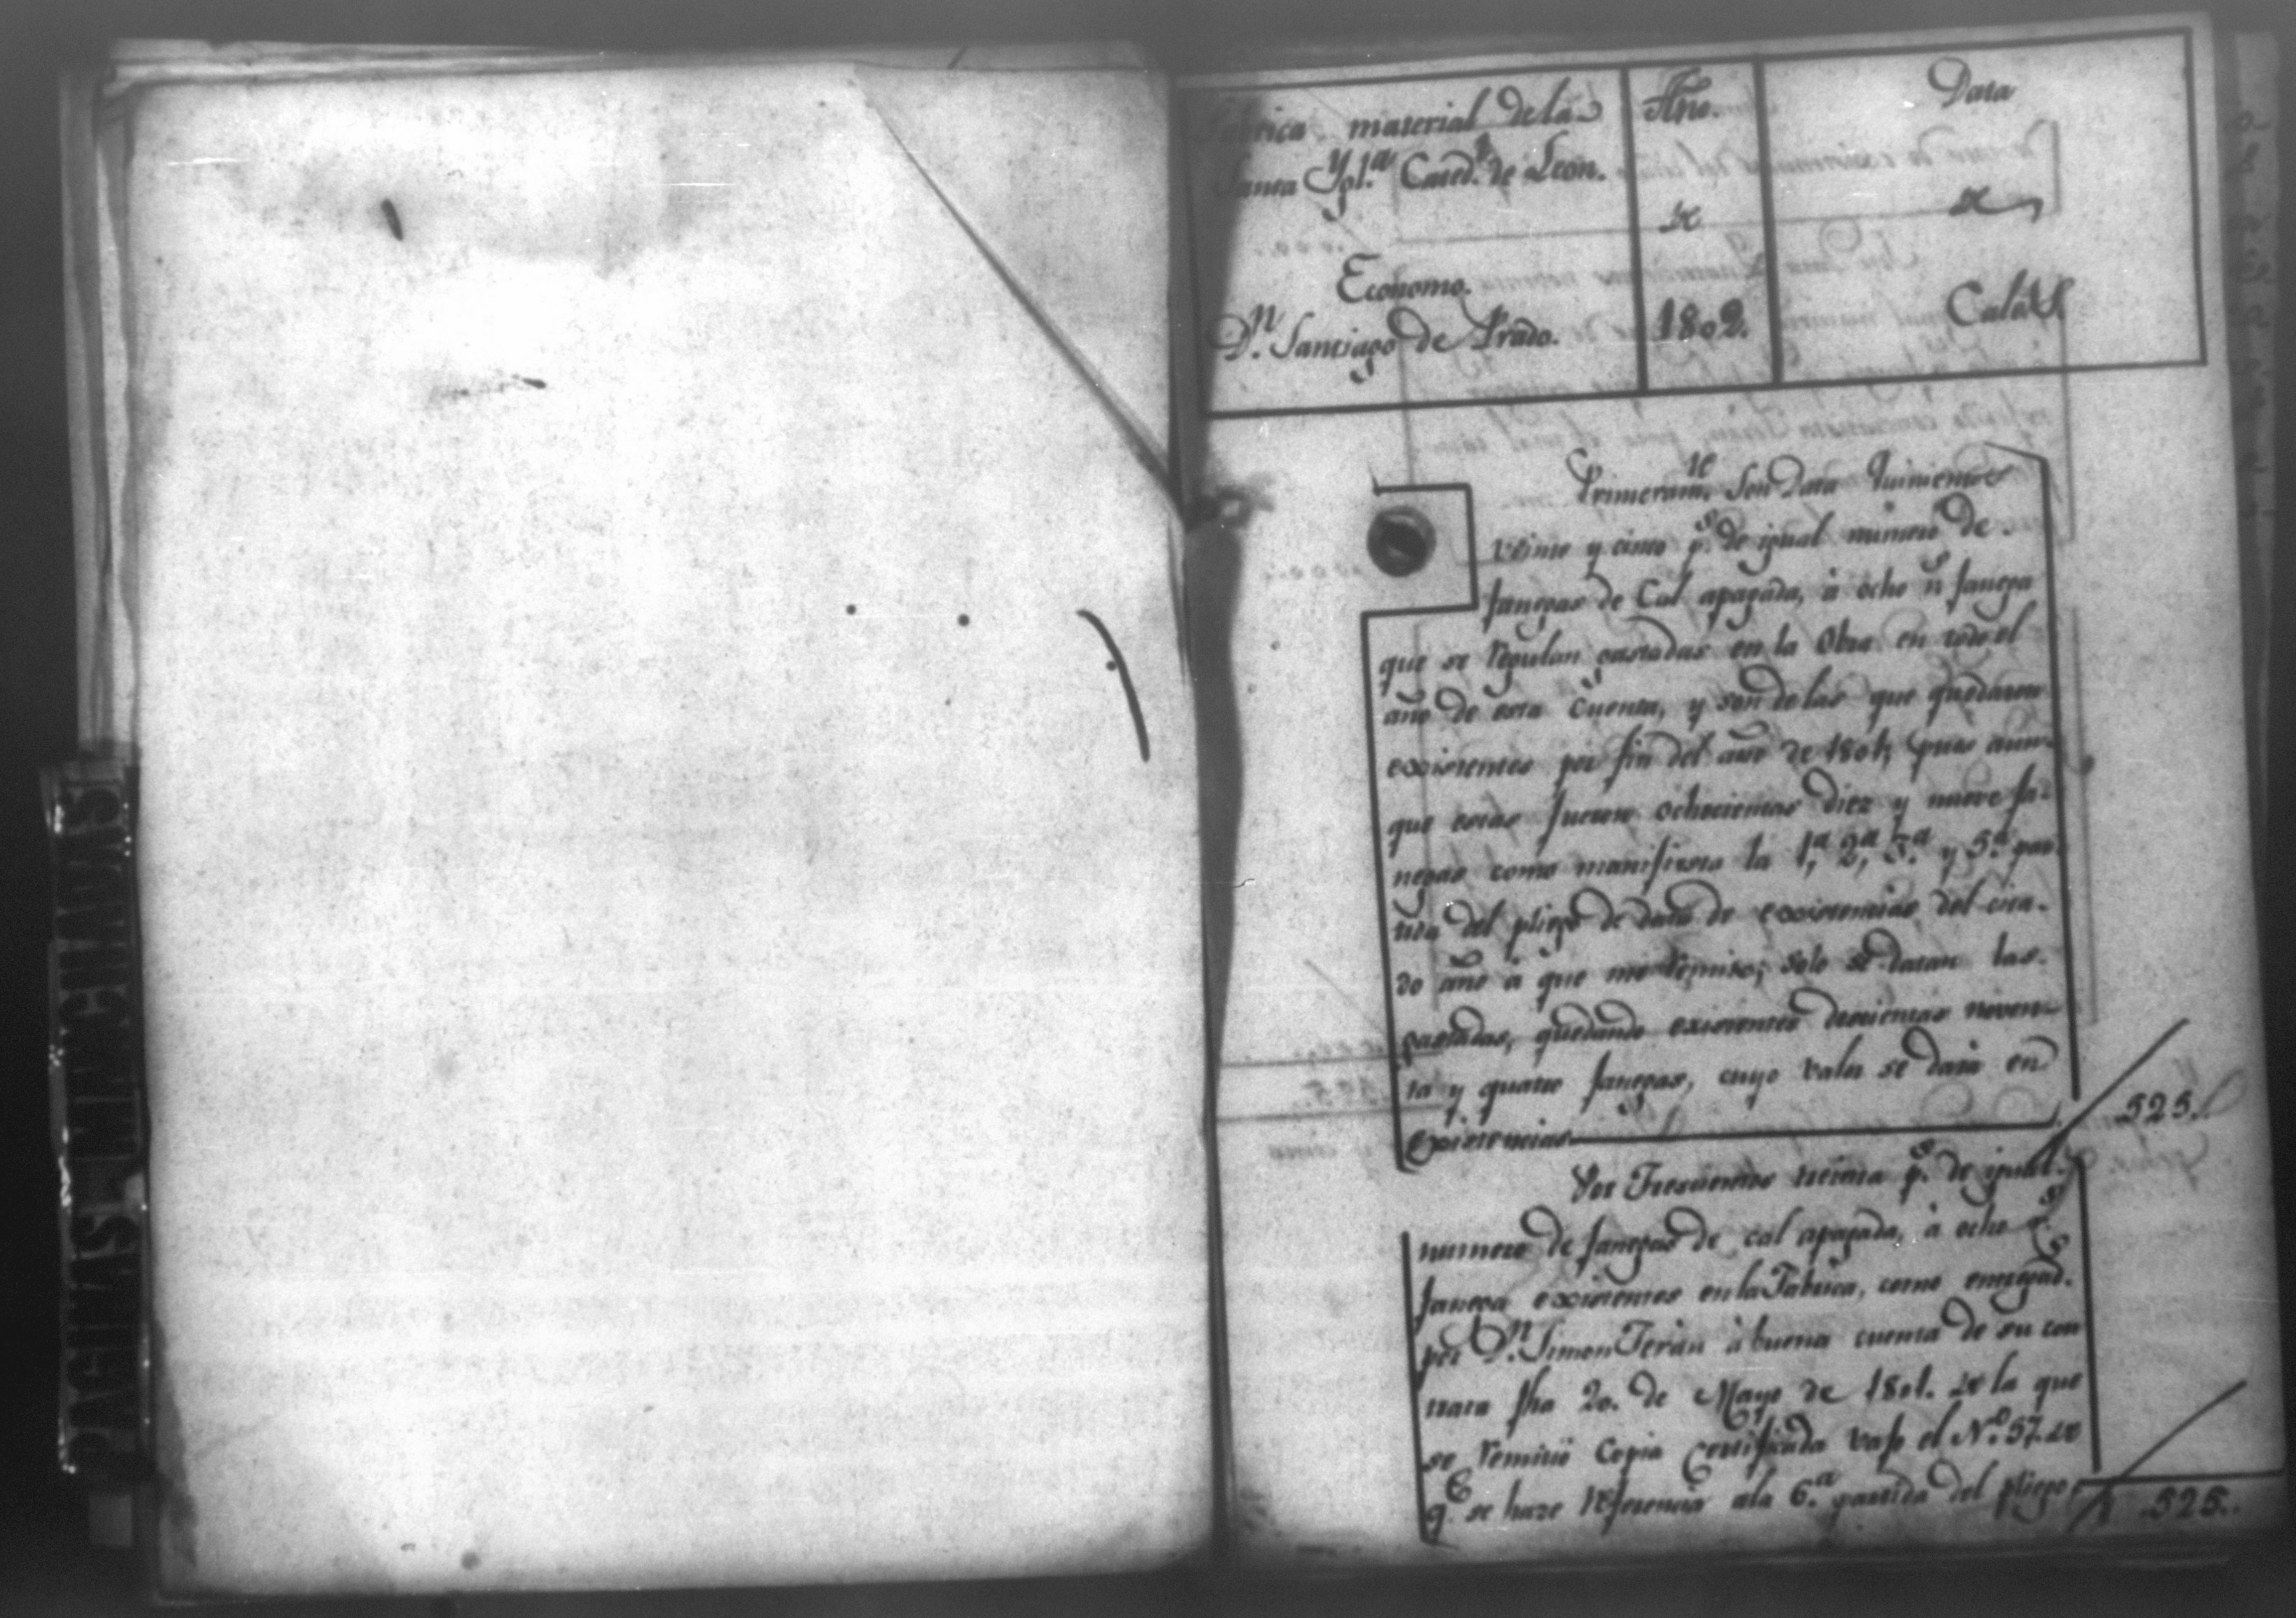 Fabrica material de la
Santa Ygl.ª Cated.l de Leon.
Economo.
D.n Santiago de Prado.
Año.
de
1802.
Data
de
Cales.
Primeram.te Son Data Quinientos
veinte y cinco p.s de igual numero de
fanegas de Cal apagada, à ocho r.s fanega
que se regulan gastadas en la Obra en todo el
año de esta Cuenta, y son de las que quedaron
existentes por fin del año de 1801, pues aun-
que estas fueron ochocientas diez y nueve fa-
negas como manifiesta la 1.ª 2.ª 3.ª y 5.ª par-
tida del pliego de data de existencias del cita-
do año à que me remito; solo se datan las
gastadas, quedando existentes doscientas noven-
ta y quatro fanegas, cuyo valor se dara en
existencias
525.
Por Trescientos treinta p.s de igual
numero de fanegas de cal apagada, à ocho r.s
fanega existentes en la Fabrica, como entregad.s
por D.n Simon Terán à buena cuenta de su con
trata fha 20. de Mayo de 1801. de la que
se remitió Copia Certificada vajo el N.º 57. de
q.e se haze referencia ala 6.ª partida del pliego
525.
PAGINAS MIPECHADAS